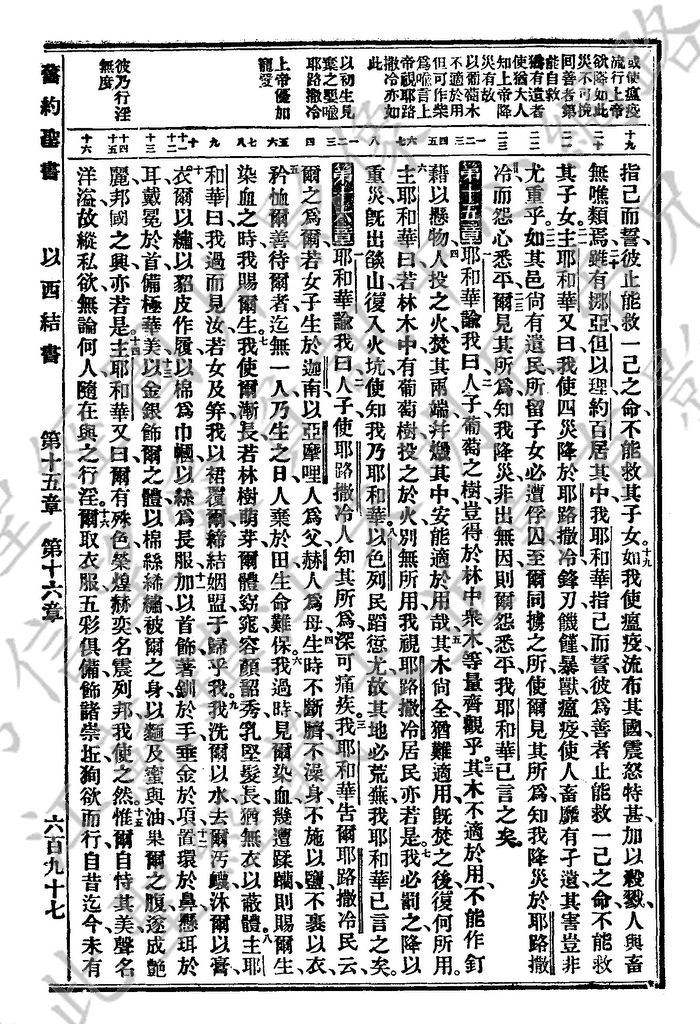 或使瘟疫
流行上帝
欲降如此
災不可挽
回善者第
能自救
猶有遺者
使猶大人
知上帝降
災有故
以葡萄木
不適於用
但可作柴
為喻言上
帝視耶路
撒冷亦如
此
以初生見
棄之嬰喻
耶路撒冷
上帝優加
寵愛
彼乃行淫
無度
十九
二十
二一
二二
二三
一二三
四五
六七
八
一二
三
四
五六
七八
九
十
十一十二
十三
十四十五
十六
指己而誓、彼止能救一己之命、不能救其子女、如我使瘟疫流布其國、震怒特甚、加以殺戮、人與畜
無噍類焉、雖有挪亞但以理約百居其中、我耶和華指己而誓、彼為善者、止能救一己之命、不能救
其子女、主耶和華又曰、我使四災降於耶路撒冷、鋒刃饑饉、暴獸瘟疫、使人畜靡有孑遺、其害豈非
尤重乎、如其邑尚有遺民、所留子女、必遭俘囚、至爾同擄之所、使爾見其所為、知我降災於耶路撒
冷、而怨心悉平、爾見其所為、知我降災非出無因、則爾怨悉平、我耶和華已言之矣。
第十五章 耶和華諭我曰、人子、葡萄之樹、豈得於林中衆木等量齊觀乎、其木不適於用、不能作釘
藉以懸物、人投之火、焚其兩端、并爇其中、安能適於用哉、其木尚全、猶難適用、旣焚之後、復何所用、
主耶和華曰、若林木中有葡萄樹、投之於火、別無所用、我視耶路撒冷居民、亦若是、我必罰之、降以
重災、旣出燄山、復入火坑、使知我乃耶和華、以色列民蹈愆尤、故其地必荒蕪、我耶和華已言之矣、
第十六章 耶和華諭我曰、人子、使耶路撒冷人知其所為、深可痛疾、我耶和華告爾耶路撒冷民云、
爾之為爾、若女子生於迦南、以亞摩哩人為父、赫人為母、生時不斷臍、不澡身、不施以鹽、不裹以衣、
矜恤爾善待爾者、迄無一人、乃生之日、人棄於田、生命難保、我過時、見爾染血、幾遭蹂躪、則賜爾生、
染血之時、我賜爾生、我使爾漸長、若林樹萌芽、爾體窈窕、容顏韶秀、乳堅髮長、猶無衣以蔽體、主耶
和華曰、我過而見汝、若女及笄、我以裙覆爾、締結姻盟、于歸乎我、我洗爾以水、去爾污衊、沐爾以膏、
衣爾以繡、以貂皮作履、以棉為巾幗、以絲為長服、加以首飾、著釧於手、垂金於項、置環於鼻、懸珥於
耳、戴冕於首、備極華美、以金銀飾爾之體、以棉絲絺繡被爾之身、以麵及蜜與油果爾之腹、遂成艷
麗、邦國之興亦若是、主耶和華又曰、爾有殊色、榮煌赫奕、名震列邦、我使之然、惟爾自恃其美、聲名
洋溢、故縱私欲、無論何人、隨在與之行淫、爾取衣服、五彩俱備、飾諸崇坵、狥欲而行、自昔迄今未有
舊約聖書　以西結書　第十五章　第十六章　六百九十七